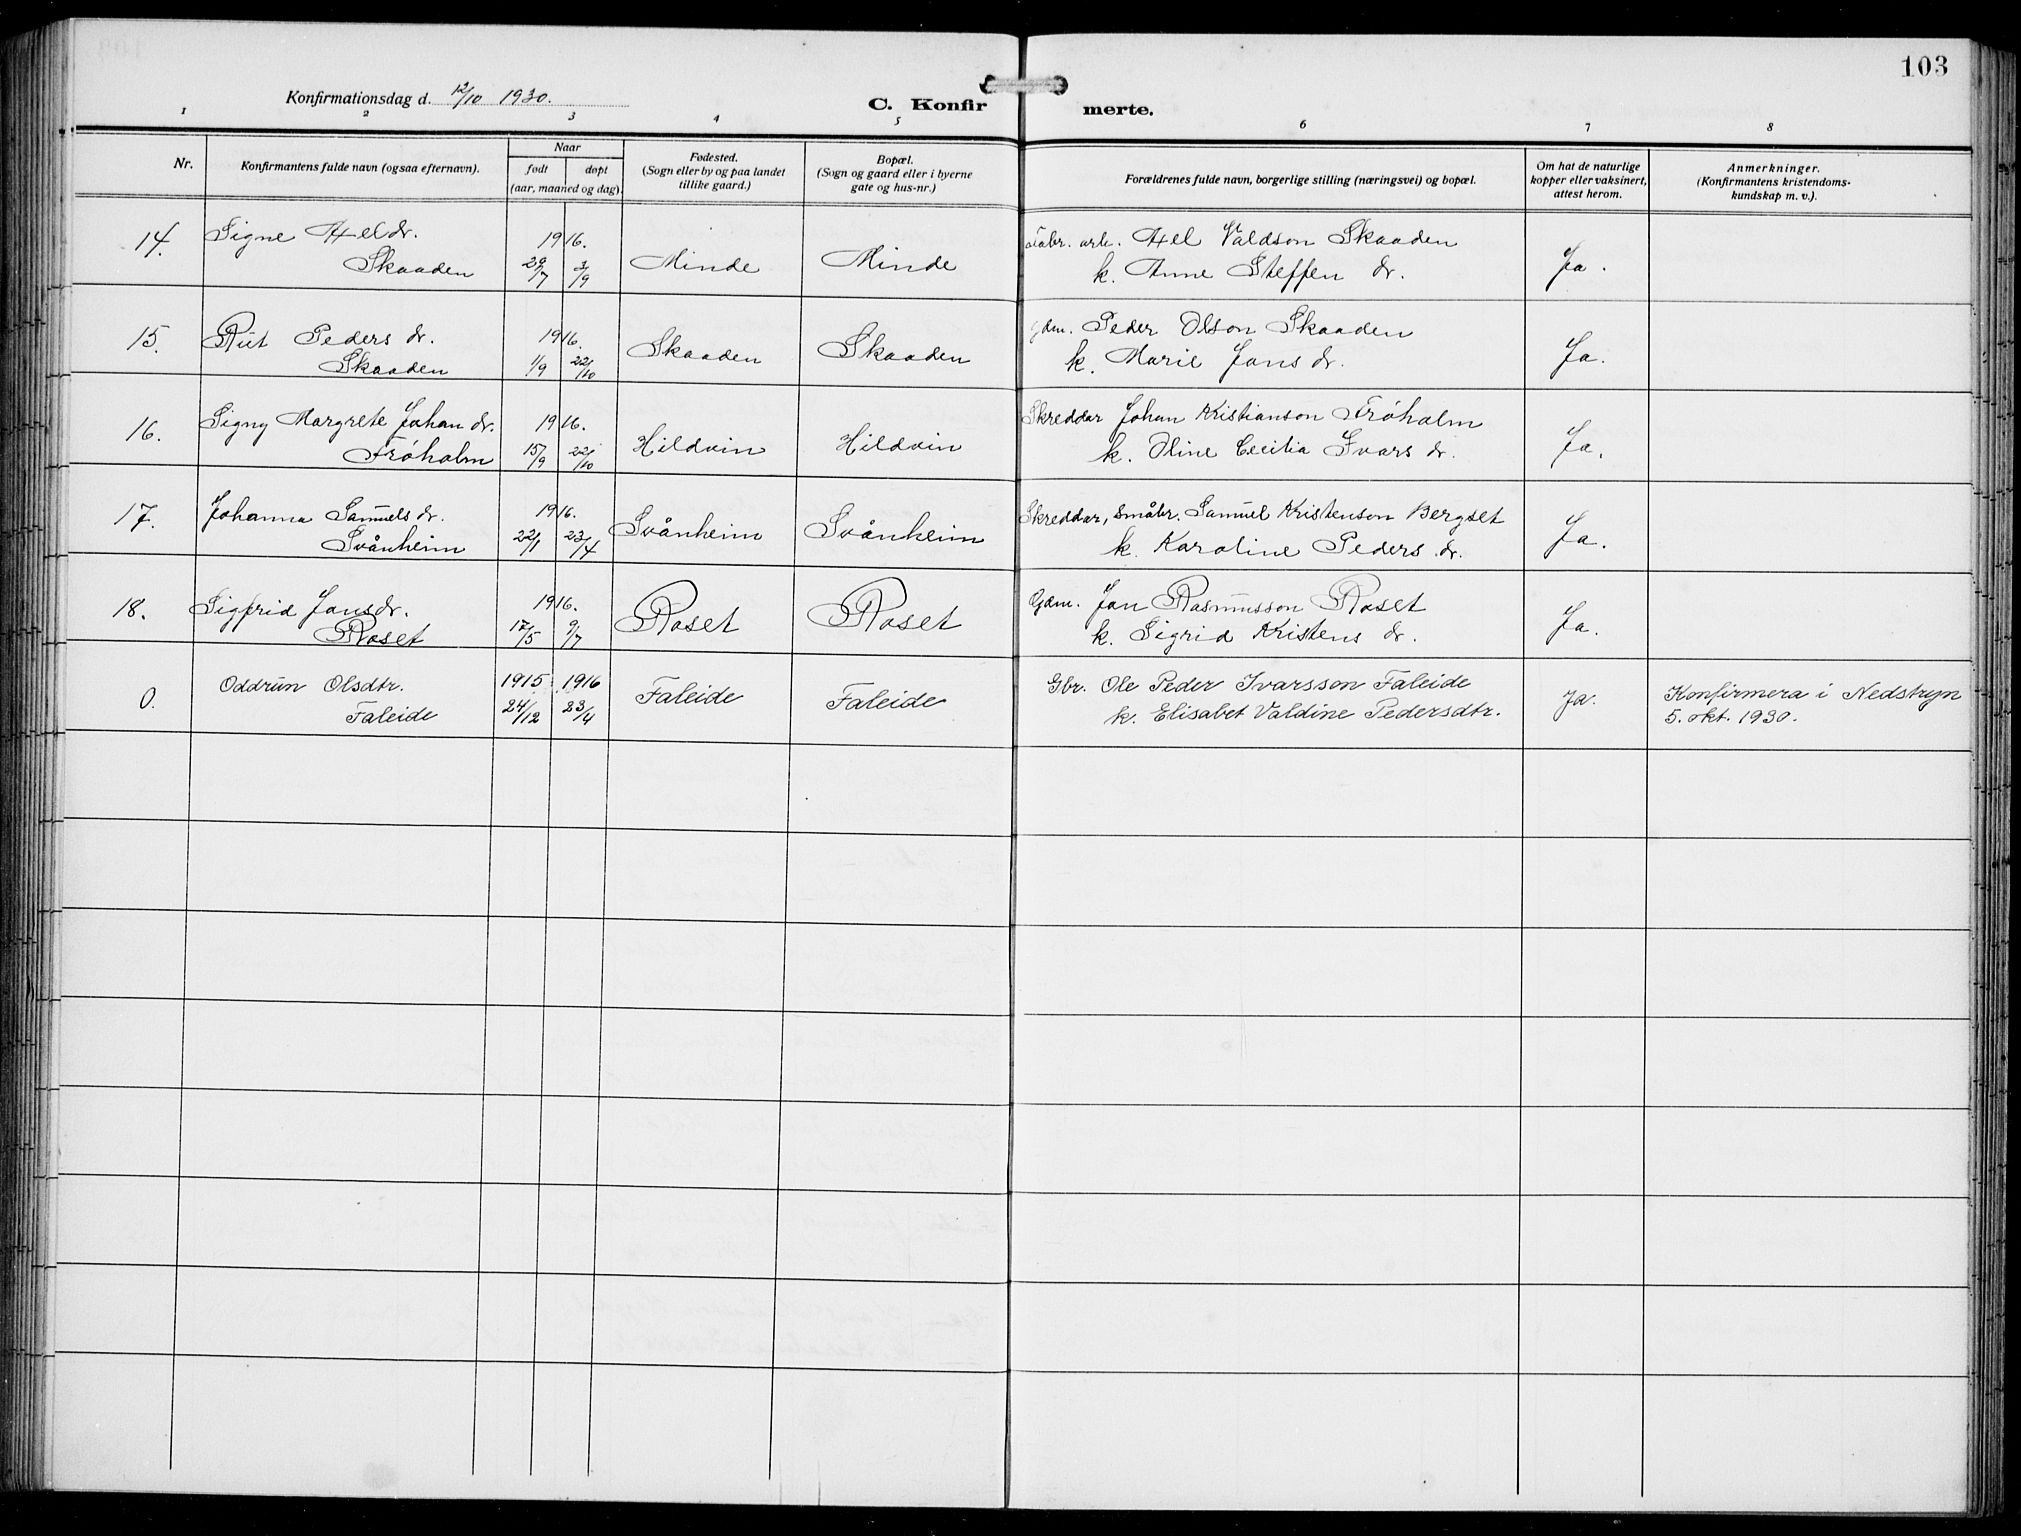 103
Konfirmationsdag d. 12/10 1930.
C. Konfir merte.
1 2 3 4 5 6 7 8
Nr.
Konfirmantens fulde navn (ogsaa efternavn).
Naar
født døpt
(aar, maaned og dag)
Fødested.
(Sogn eller by og paa landet
tillike gaard.)
Bopæl.
(Sogn og gaard eller i byerne
gate og hus-nr.)
Forældrenes fulde navn, borgerlige stilling (næringsvei) og bopæl.
Om hat de naturlige
kopper eller vaksinert,
attest herom.
Anmerkninger.
(Konfirmantens kristendoms-
kundskap m. v.).
14. Signe Axeldr. 1916. Fabr. arb. Axel Valdson Skaaden
Skaaden 29/7 3/9 Minde Minde k. Anne Steffen dr. Ja.
15. Rut Peders dr. 1916. Gdm. Peder Olson Skaaden
Skaaden 1/9 22/10 Skaaden Skaaden k. Marie Jans dr. Ja.
16. Signy Margrete Johan dr. 1916. Skreddar Johan Kristianson Frøholm
Frøholm 15/9 22/10 Hildvin Hildvin k. Oline Cecilia Ivars dr. Ja.
17. Johanna Samuels dr. 1916. Skreddar, småbr. Samuel Kristenson Bergset
Svånheim 22/1 23/4 Svånheim Svånheim k. Karoline Peders dr. Ja.
18. Sigfrid Jansdr. 1916. Gdm. Jan Rasmusson Roset
Roset 17/5 9/7 Roset Roset k. Sigrid Kristens dr. Ja.
0. Oddrun Olsdtr. 1915 1916 Faleide Faleide Gbr. Ole Peder Ivarsson Faleide Ja. Konfirmera i Nedstryn
Faleide 24/12 23/4 k. Elisabet Valdine Pedersdtr. 5. okt. 1930.